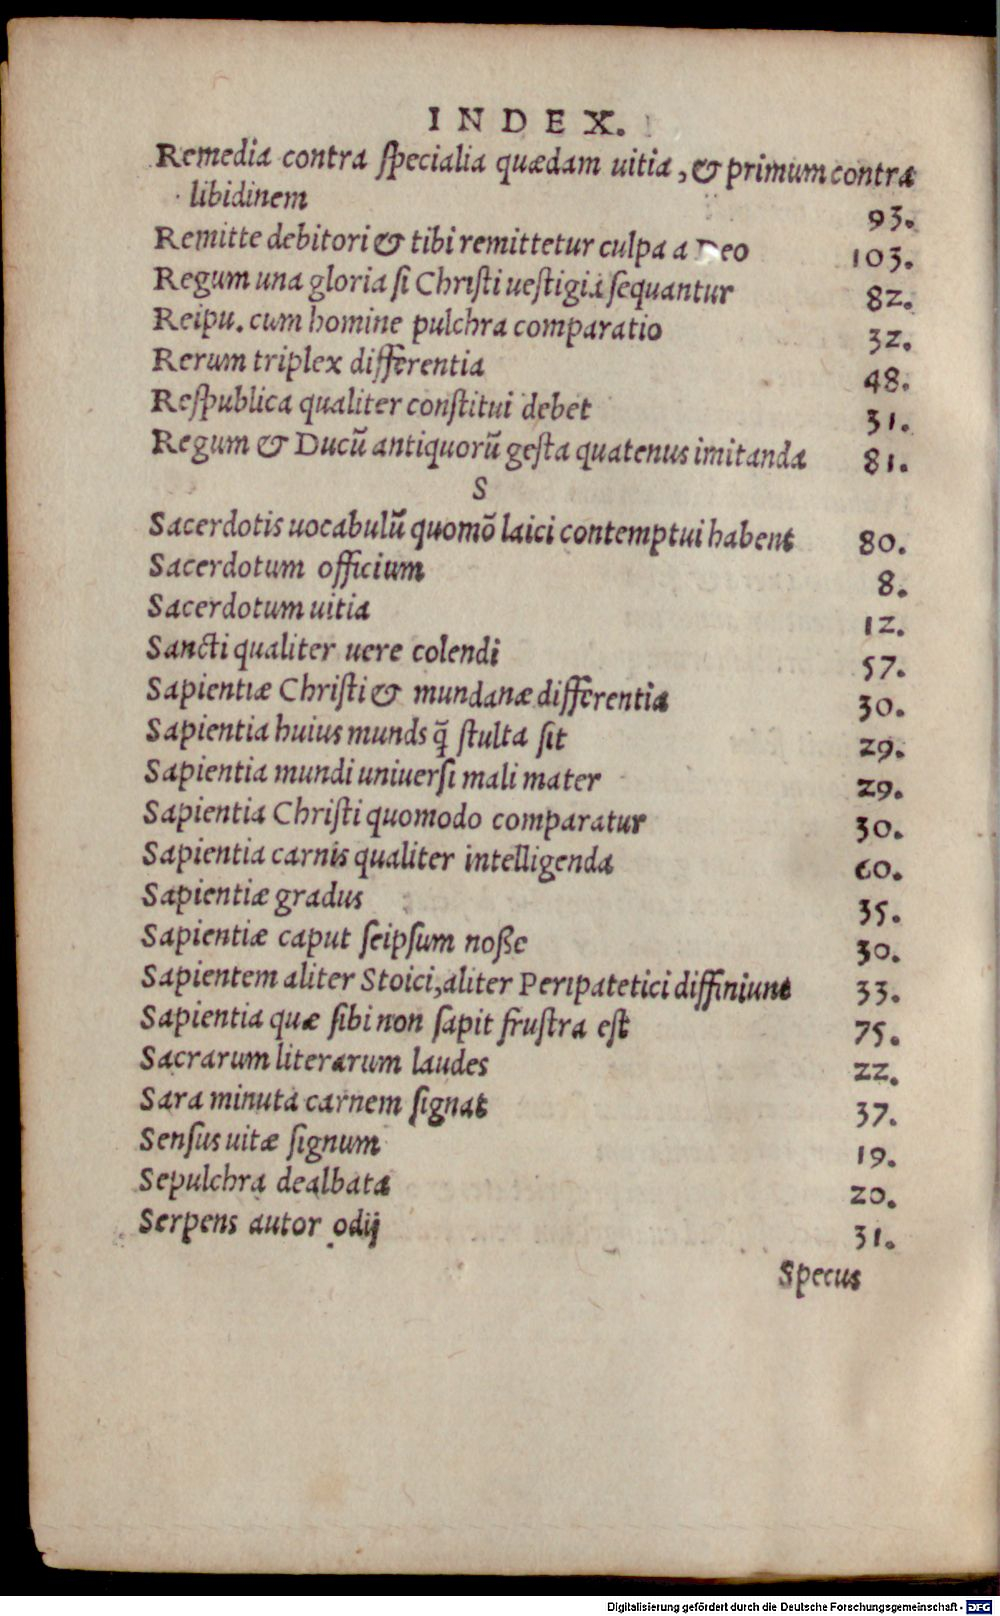 INDEX.
Remedia contra ſpecialia quædam uitia, & primum contra
libidinem 93.
Remitte debitori & tibi remittetur culpa a Deo 103.
Regum una gloria ſi Chriſti ueſtigia ſequantur 82.
Reipu. cum homine pulchra comparatio 32.
Rerum triplex differentia 48.
Reſpublica qualiter conſtitui debet 31.
Regum & Ducū antiquorū geſta quatenus imitanda 81.
S
Sacerdotis uocabulū quomō laici contemptui habent 80.
Sacerdotum officium 8.
Sacerdotum uitia 12.
Sancti qualiter uere colendi 57.
Sapientiæ Chriſti & mundanæ differentia 30.
Sapientia huius munds q̄ ſtulta ſit 29.
Sapientia mundi uniuerſi mali mater 29.
Sapientia Chriſti quomodo comparatur 30.
Sapientia carnis qualiter intelligenda 60.
Sapientiæ gradus 35.
Sapientiæ caput ſeipſum noße 30.
Sapientem aliter Stoici, aliter Peripatetici diffiniunt 33.
Sapientia quæ ſibi non ſapit fruſtra eſt 75.
Sacrarum literarum laudes 22.
Sara minuta carnem ſignat 37.
Senſus uitæ ſignum 19.
Sepulchra dealbata 20.
Serpens autor odij 31.
Specus
Digitalisierung gefördert durch die Deutsche Forschungsgemeinschaft - DFG